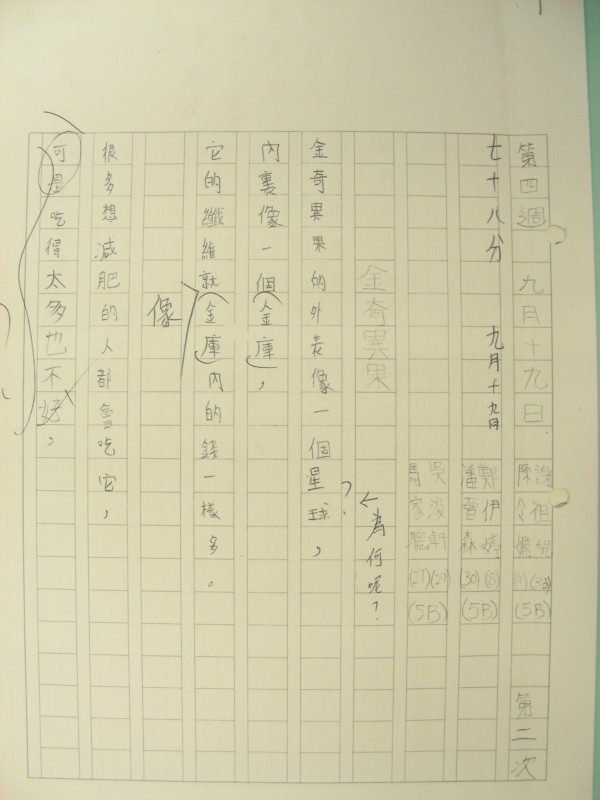 第四週 九月十九日 第二次
七十八分 九月十九日
陳 祖兒 (5B) (5B)
潘晉森 (30) 鄭伊婷 (5) (5B)
馬家聰 (27) 吳浚軒 (27) (5B)
金奇異果
←為何呢?
金奇異果的外表像一個星球,?
內裏像一個金庫,
它的纖維就金庫內的錢一樣多。
像
很多想減肥的人都會吃它,
可是吃得太多也不好,